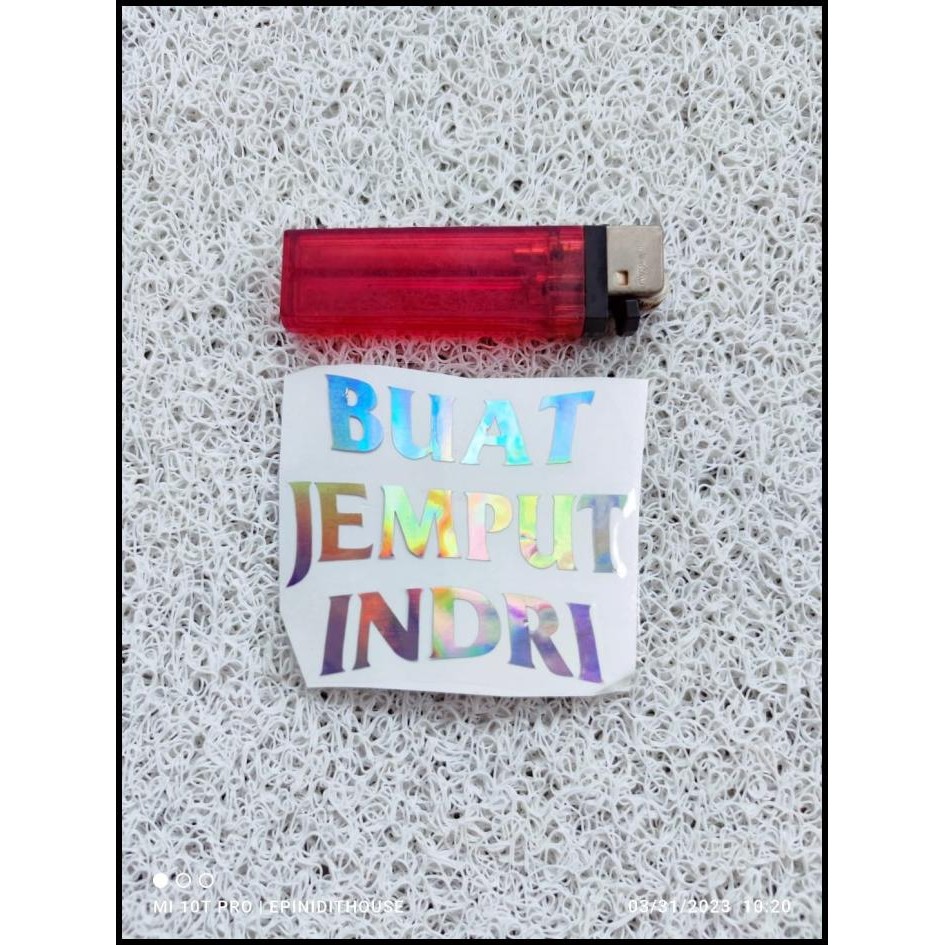 BUAT
JEMPUT
INDRI
MI 10T PRO | EPINIDITHOUSE
03/31/2023 10:20